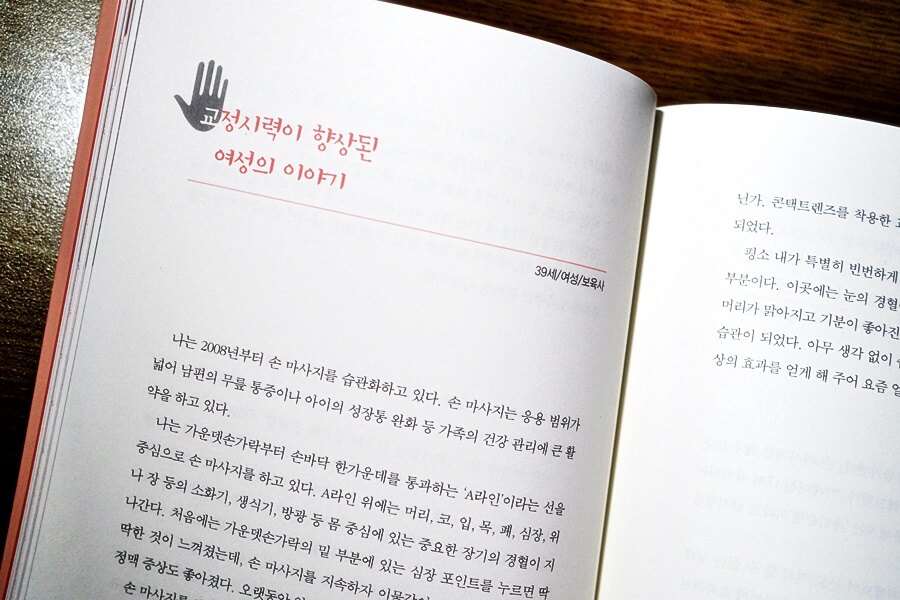 교정시력이 향상된
여성의 이야기
39세/여성/보육사
나는 2008년부터 손 마사지를 습관화하고 있다. 손 마사지는 응용 범위가
넓어 남편의 무릎 통증이나 아이의 성장통 완화 등 가족의 건강 관리에 큰 활
약을 하고 있다.
나는 가운뎃손가락부터 손바닥 한가운데를 통과하는 ‘A라인’이라는 선을
중심으로 손 마사지를 하고 있다. A라인 위에는 머리, 코, 입, 목, 폐, 심장, 위
나 장 등의 소화기, 생식기, 방광 등 몸 중심에 있는 중요한 장기의 경혈이 지
나간다. 처음에는 가운뎃손가락의 밑 부분에 있는 심장 포인트를 누르면 딱
딱한 것이 느껴졌는데, 손 마사지를 지속하자
정맥 증상도 좋아졌다. 오랫동안
손 마사지를
닌가. 콘택트렌즈를 착용한
되었다.
평소 내가 특별히 빈번하게
부분이다. 이곳에는 눈의 경혈
머리가 맑아지고 기분이 좋아진
습관이 되었다. 아무 생각 없이
상의 효과를 얻게 해 주어 요즘